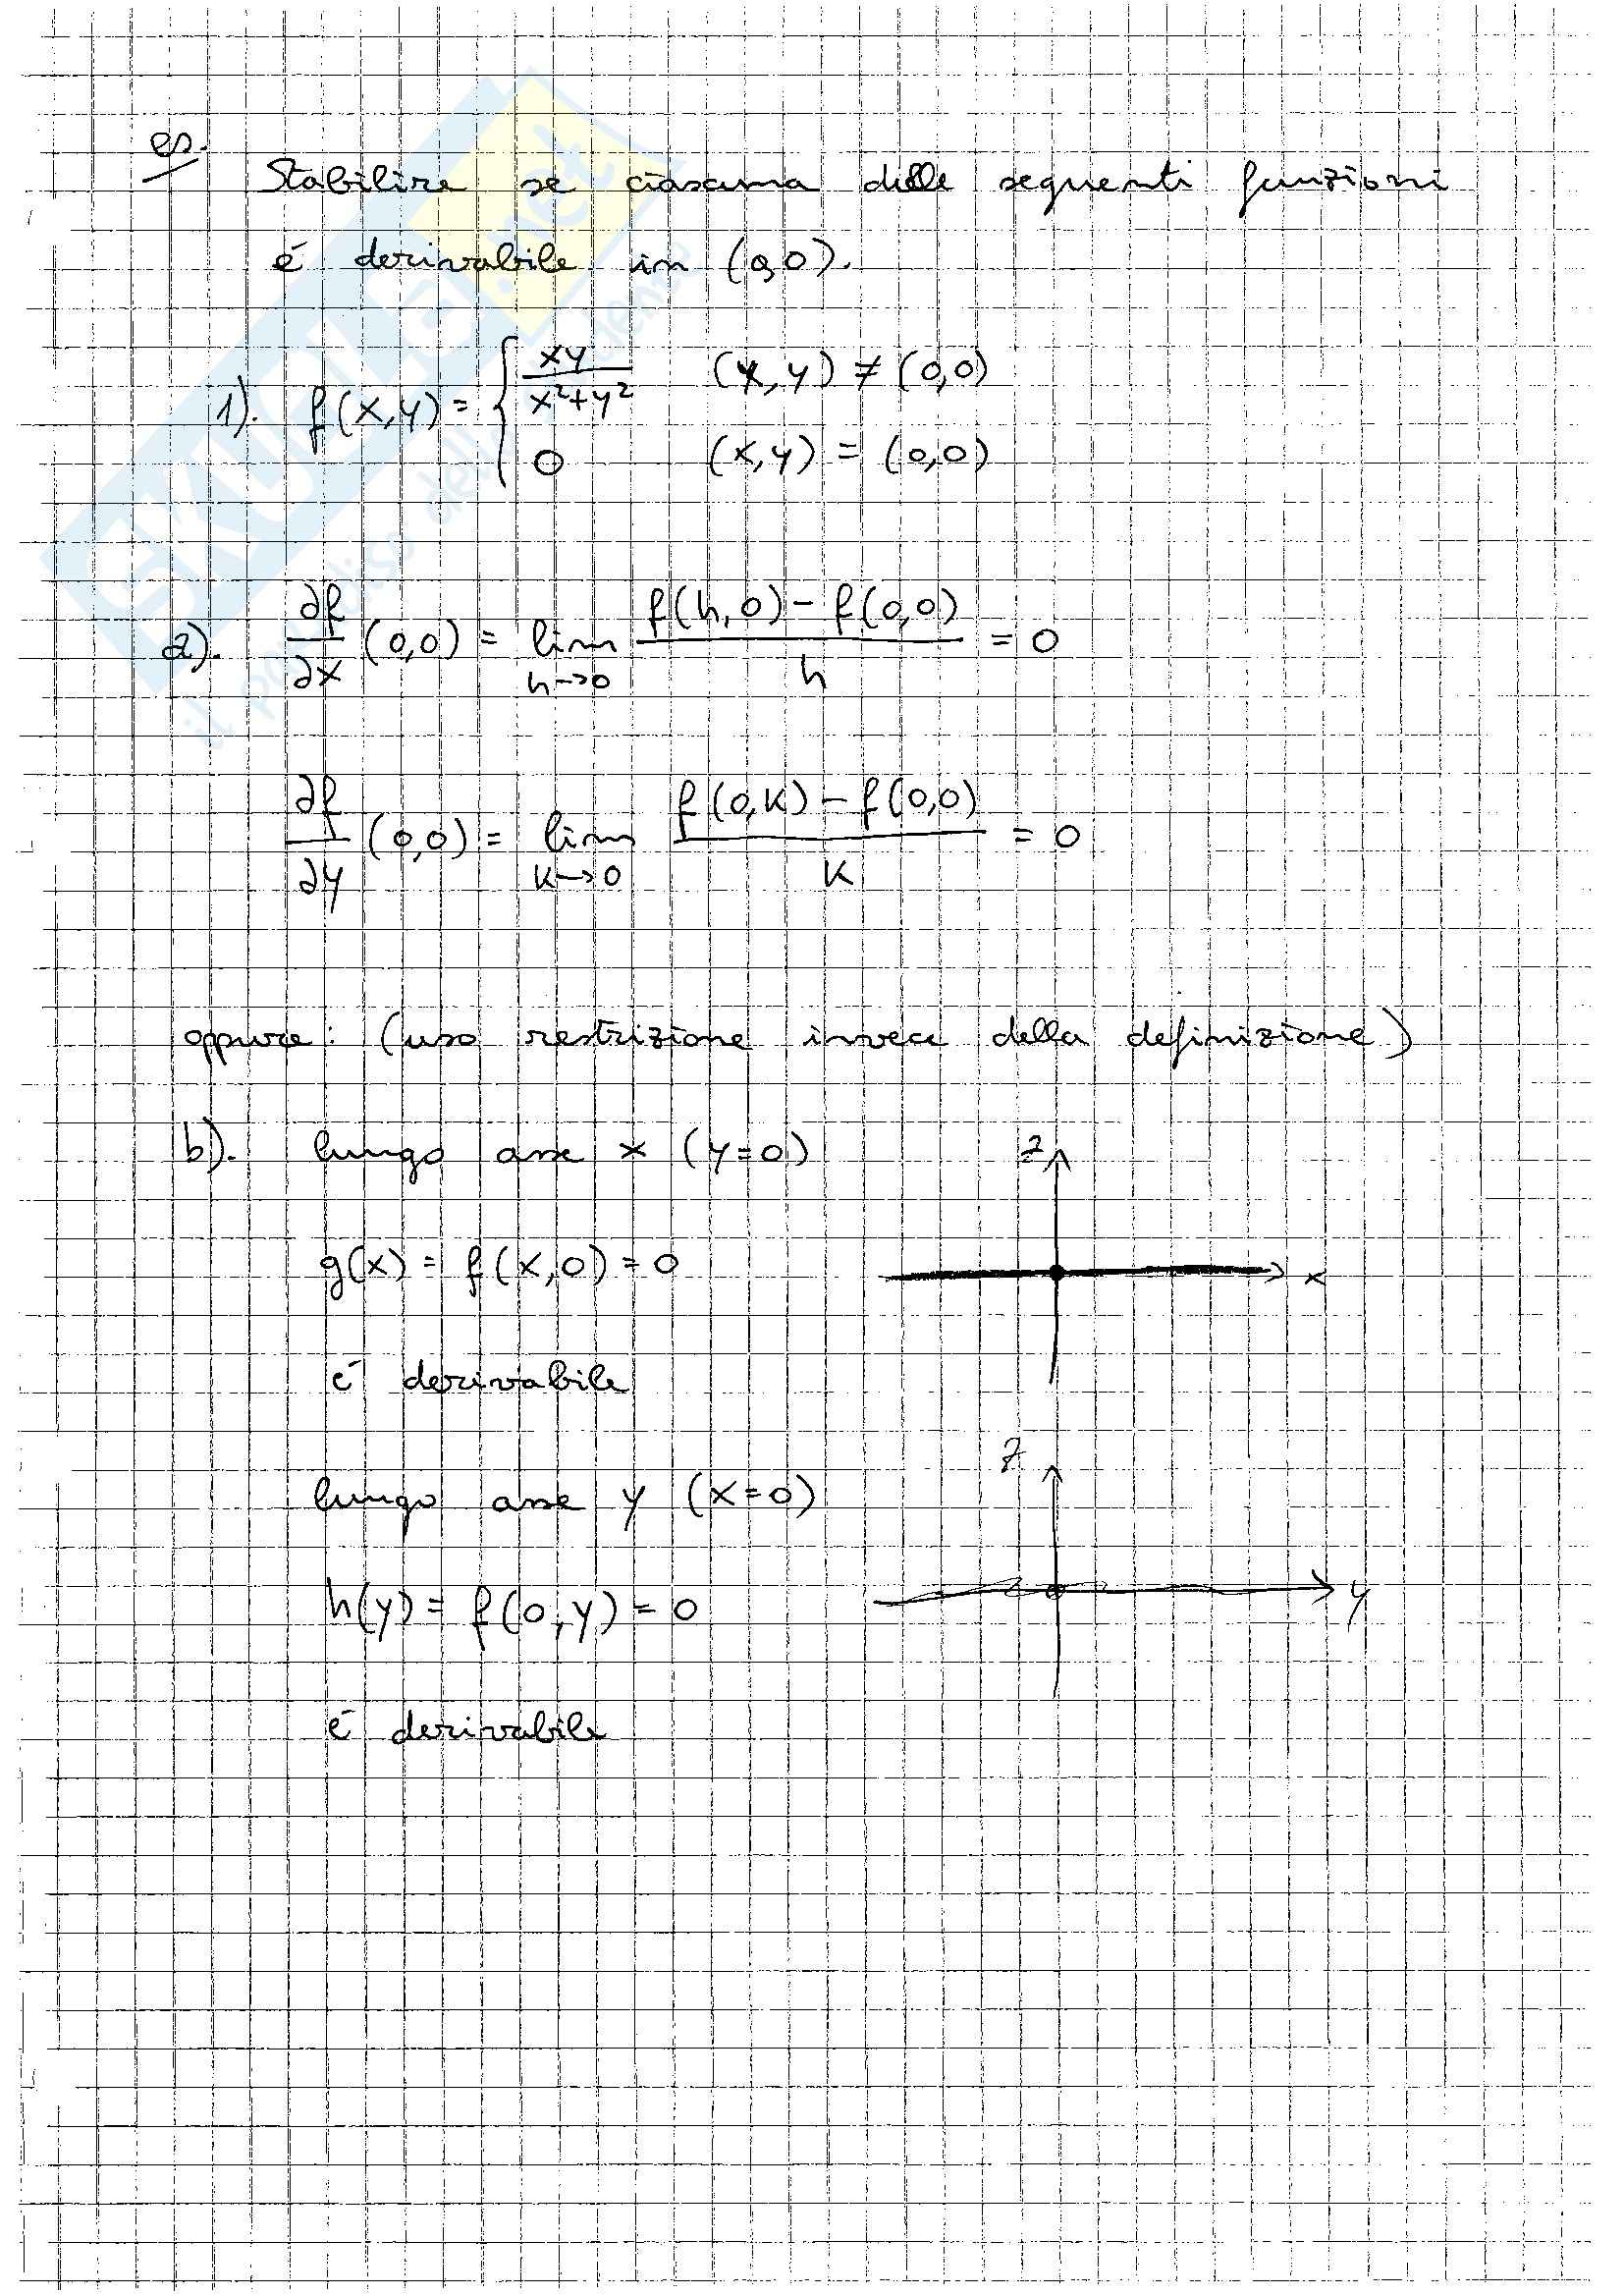 es.
Stabilire se ciascuna delle seguenti funzioni
é derivabile in (0,0).
1). f(x,y) = { xy / x²+y²   (x,y) ≠ (0,0)
0   (x,y) = (0,0)
a). ∂f/∂x (0,0) = lim h→0 f(h,0) - f(0,0) / h = 0
∂f/∂y (0,0) = lim k→0 f(0,k) - f(0,0) / k = 0
oppure: (uso restrizione invece della definizione)
b). lungo asse x (y=0)
z
x
g(x) = f(x,0) = 0
é derivabile
lungo asse y (x=0)
z
y
h(y) = f(0,y) = 0
é derivabile
SKUOLA.net